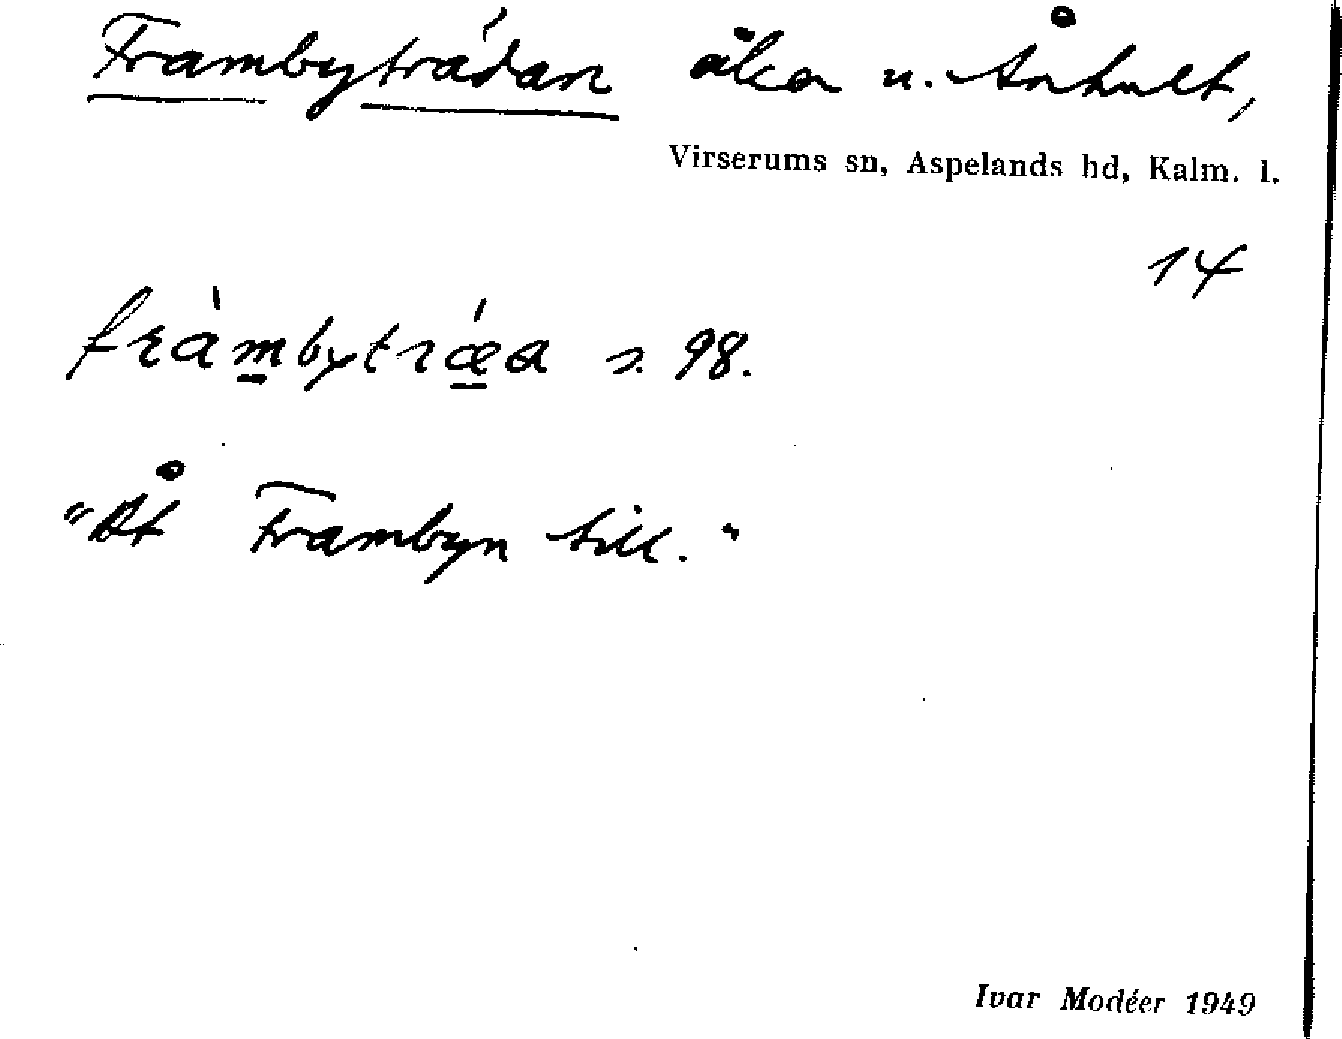 Frambyträdan åker u. Århult,
Virserums sn, Aspelands hd, Kalm. l.
14
fràmbytræ̀a s. 98.
"Åt Frambyn till."
Ivar Modéer 1949